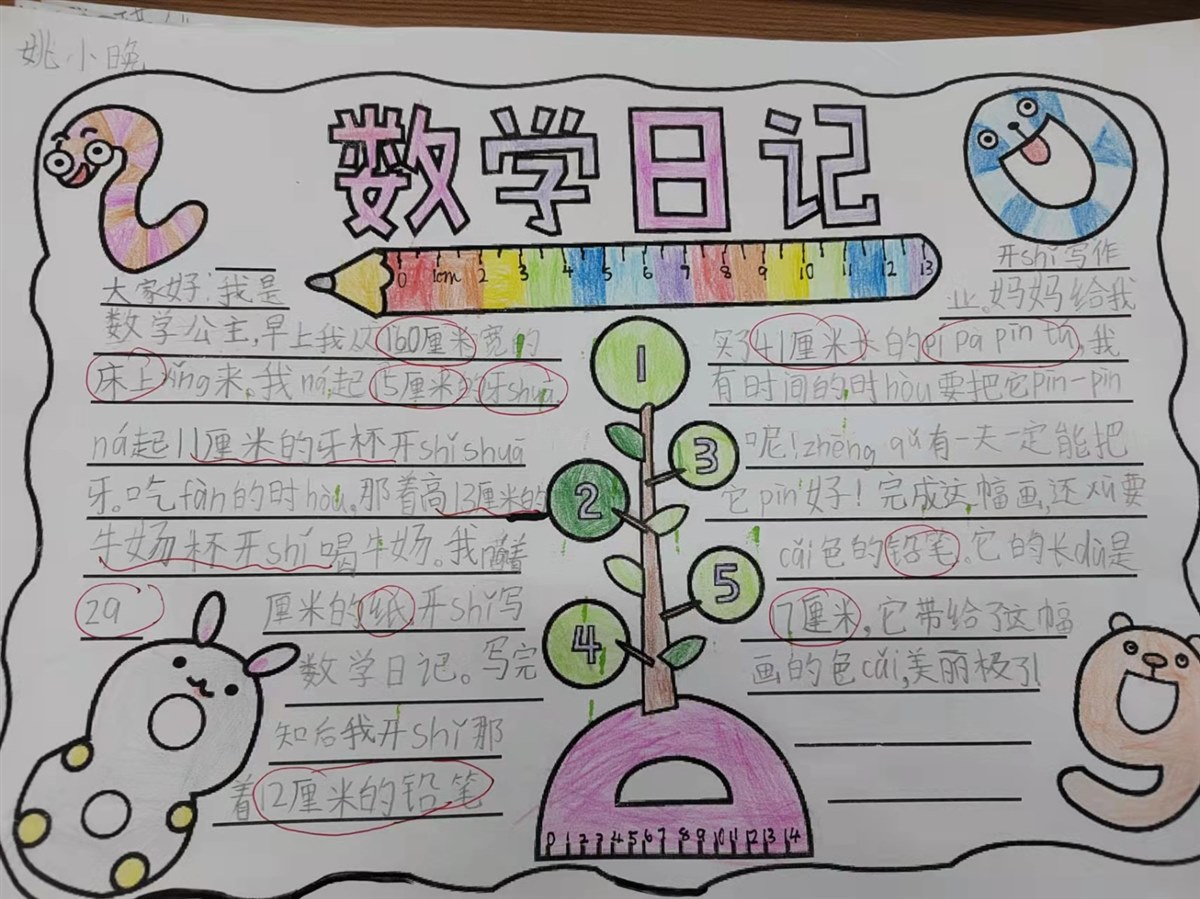 姚小晚
数学日记
0 1cm 2 3 4 5 6 7 8 9 10 11 12 13
大家好!我是
数学公主,早上我从160厘米宽的
床上xǐng来。我ná起15厘米的牙shuā,
ná起11厘米的牙杯开shǐshuā
牙。吃fàn的时hòu,那着高13厘米的
牛奶杯开shǐ喝牛奶。我
29 厘米的纸开shǐ写
数学日记。写完
知后我开shǐ那
着12厘米的铅笔
开shǐ写作
业。妈妈给我
买了41厘米长的pí pà pīn tú,我
有时间的时hòu要把它pīn一pīn
呢!zhēng qǔ有一天一定能把
它pīn好!完成这幅画,还xū要
cǎi色的铅笔。它的长dù是
7厘米,它带给了这幅
画的色cǎi,美丽极了!
1
3
2
5
4
0 1 2 3 4 5 6 7 8 9 10 11 12 13 14